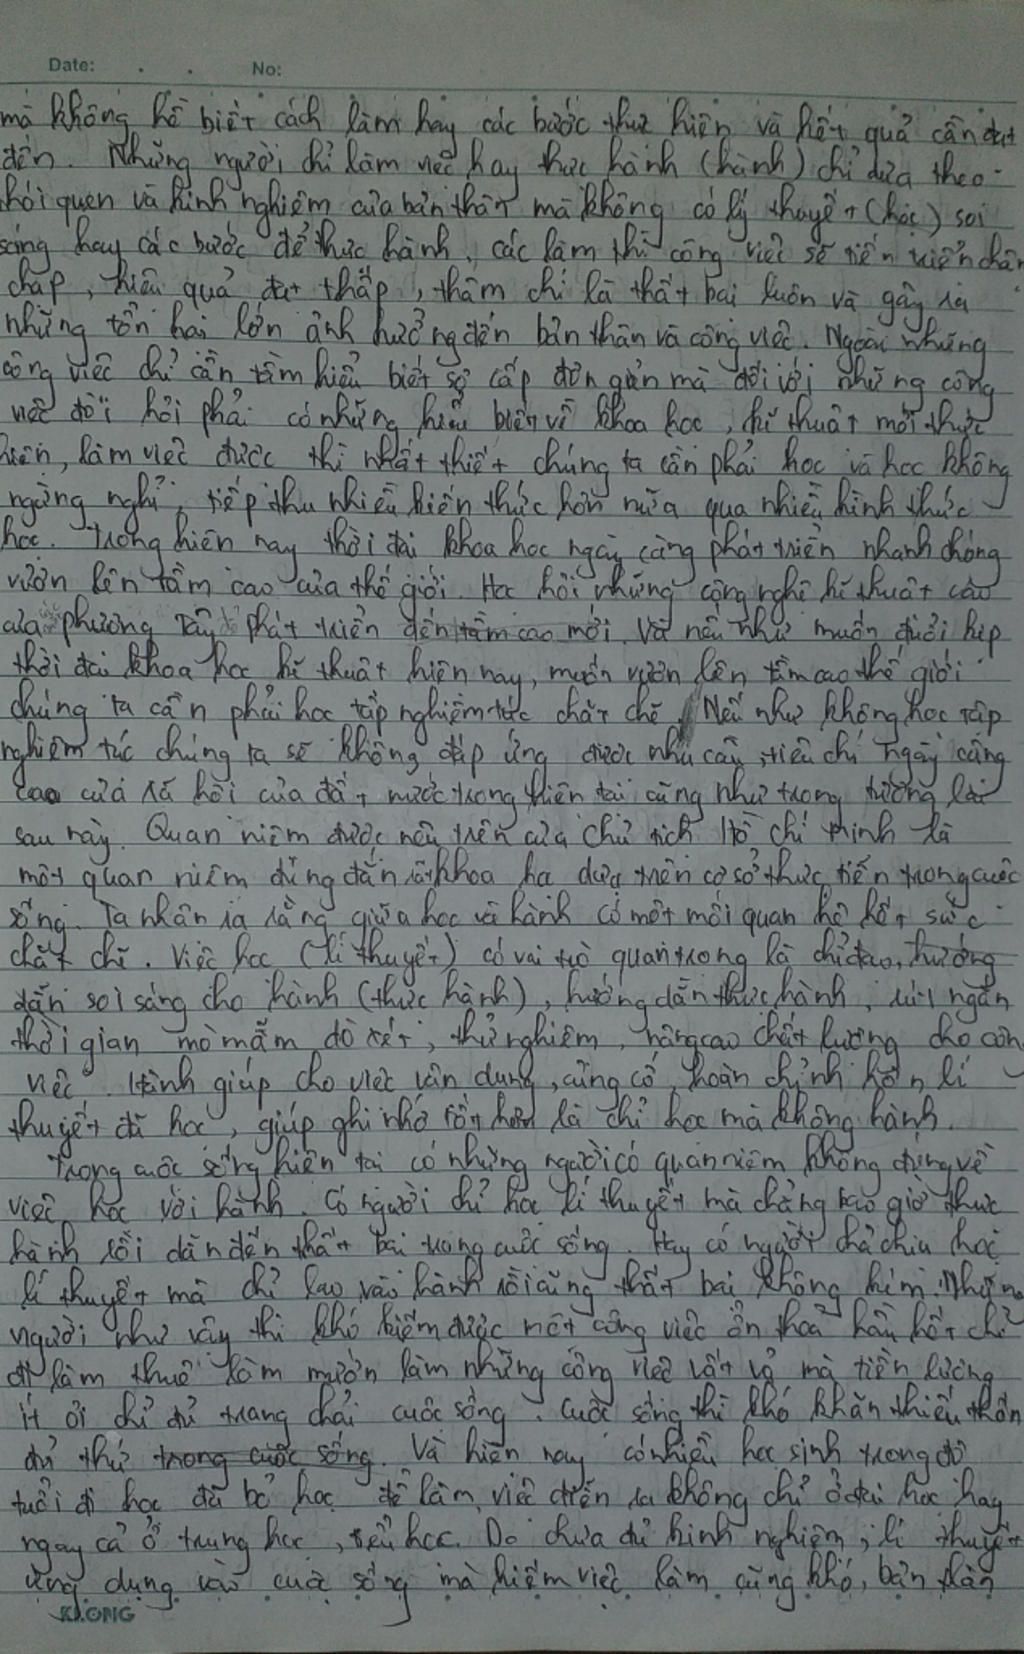 Date: . . No:
mà không hề biết cách làm hay các bước thực hiện và kết quả cần đạt
đến. Những người chỉ làm việc hay thực hành (hành) chỉ dựa theo
thói quen và kinh nghiệm của bản thân mà không có lý thuyết (học) soi
sáng hay các bước để thực hành, các làm thì công việc sẽ tiến triển chậm
chạp, hiệu quả đạt thấp, thậm chí là thất bại luôn và gây ra
những tổn hại lớn ảnh hưởng đến bản thân và công việc. Ngoài những
công việc chỉ cần tầm hiểu biết sơ cấp đơn giản mà đối với những công
việc đòi hỏi phải có những hiểu biết về khoa học, kĩ thuật mới thực
hiện, làm việc được thì nhất thiết chúng ta cần phải học và học không
ngừng nghỉ, tiếp thu nhiều kiến thức hơn nữa qua nhiều hình thức
học. Trong hiện nay thời đại khoa học ngày càng phát triển nhanh chóng
vươn lên tầm cao của thế giới. Học hỏi những công nghệ kĩ thuật cao
của phương Tây phát triển đến tầm cao mới. Và nếu như muốn đuổi kịp
thời đại khoa học kĩ thuật hiện nay, muốn vươn lên tầm cao thế giới
chúng ta cần phải học tập nghiêm túc chặt chẽ. Nếu như không học tập
nghiêm túc chúng ta sẽ không đáp ứng được nhu cầu, tiêu chí ngày càng
cao của xã hội của đất nước trong hiện tại cũng như trong tương lai
sau này. Quan niệm được nêu trên của Chủ tịch Hồ Chí Minh là
một quan niệm đúng đắn rất khoa học dựa trên cơ sở thực tiễn trong cuộc
sống. Ta nhận ra rằng giữa học và hành có một mối quan hệ hết sức
chặt chẽ. Việc học (lí thuyết) có vai trò quan trọng là chỉ đạo, hướng
dẫn soi sáng cho hành (thực hành), hướng dẫn thực hành, rút ngắn
thời gian mò mẫm dò xét, thử nghiệm, nâng cao chất lượng cho công
việc. Hành giúp cho việc vận dụng, củng cố, hoàn chỉnh hơn lí
thuyết đã học, giúp ghi nhớ tốt hơn là chỉ học mà không hành.
Trong cuộc sống hiện tại có những người có quan niệm không đúng về
việc học với hành. Có người chỉ học lí thuyết mà chẳng bao giờ thực
hành rồi dẫn đến thất bại trong cuộc sống. Hay có người chả chịu học
lí thuyết mà chỉ lao vào hành rồi cũng thất bại không kém. Những
người như vậy thì khó kiếm được một công việc ổn thoả hầu hết chỉ
đi làm thuê làm mướn làm những công việc vất vả mà tiền lương
ít ỏi chỉ đủ trang chải cuộc sống. Cuộc sống thì khó khăn thiếu thốn
đủ thứ trong cuộc sống. Và hiện nay có nhiều học sinh trong độ
tuổi đi học đã bỏ học để làm việc diễn ra không chỉ ở đại học hay
ngay cả ở trung học, tiểu học. Do chưa đủ kinh nghiệm, lí thuyết
ứng dụng vào cuộc sống mà kiếm việc làm cũng khó, bản thân
KLONG